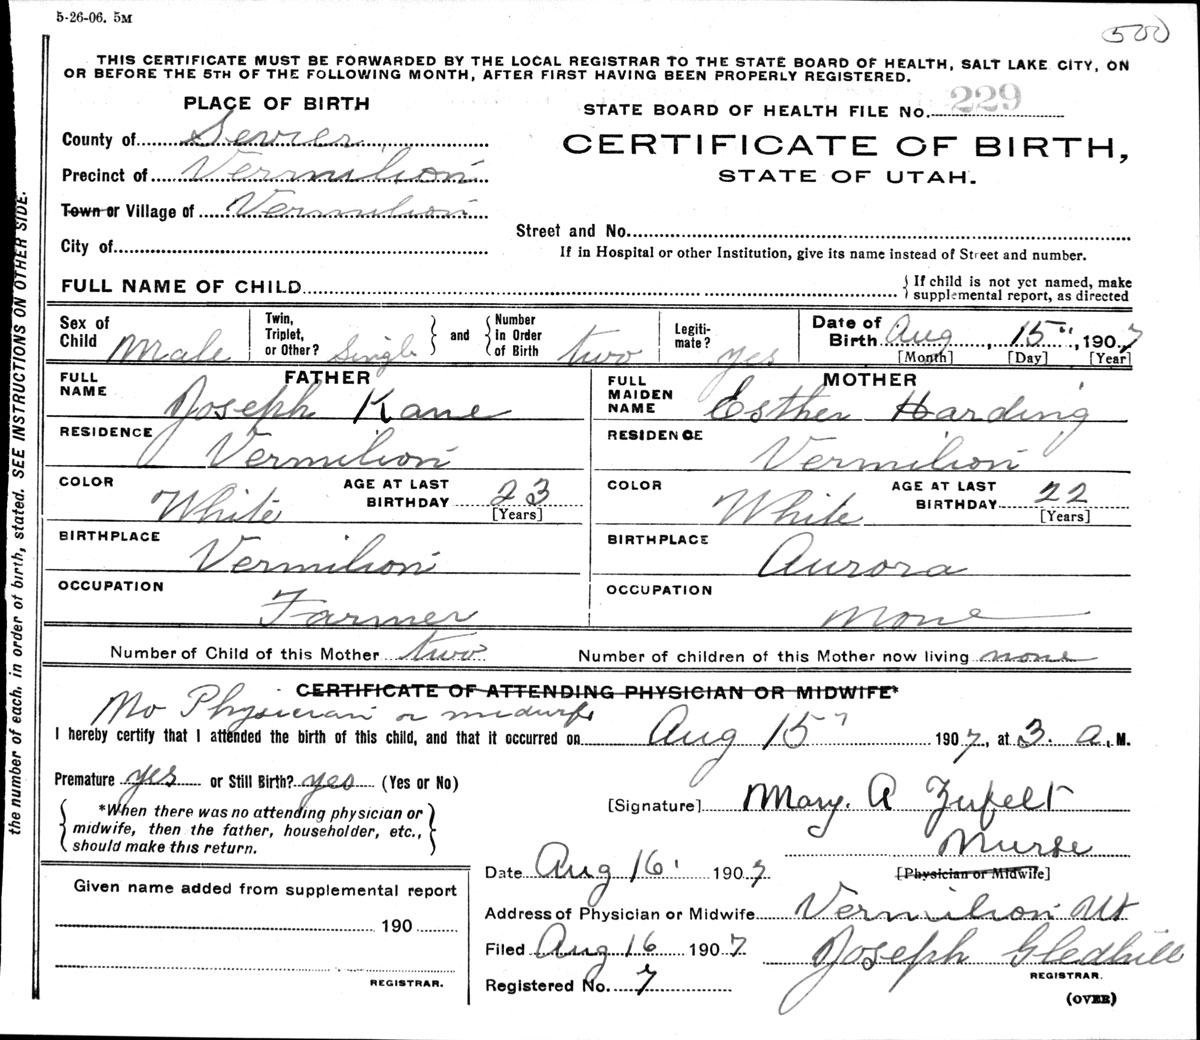 5-26-06. 5M
500
THIS CERTIFICATE MUST BE FORWARDED BY THE LOCAL REGISTRAR TO THE STATE BOARD OF HEALTH, SALT LAKE CITY, ON
OR BEFORE THE 5TH OF THE FOLLOWING MONTH, AFTER FIRST HAVING BEEN PROPERLY REGISTERED.
PLACE OF BIRTH
STATE BOARD OF HEALTH FILE No. 229
County of Sevier
CERTIFICATE OF BIRTH,
Precinct of Vermilion
STATE OF UTAH.
Town or Village of Vermilion
Street and No.
City of
If in Hospital or other Institution, give its name instead of Street and number.
FULL NAME OF CHILD
{ If child is not yet named, make
supplemental report, as directed
Sex of Child Male
Twin, Triplet, or Other? Single
and
Number in Order of Birth two
Legiti-mate? yes
Date of Birth Aug 15", 1907
[Month] [Day] [Year]
FATHER
FULL NAME Joseph Kane
RESIDENCE Vermilion
COLOR White
AGE AT LAST BIRTHDAY 23
[Years]
BIRTHPLACE Vermilion
OCCUPATION Farmer
MOTHER
FULL MAIDEN NAME Esther Harding
RESIDENCE Vermilion
COLOR White
AGE AT LAST BIRTHDAY 22
[Years]
BIRTHPLACE Aurora
OCCUPATION None
Number of Child of this Mother two
Number of children of this Mother now living none
CERTIFICATE OF ATTENDING PHYSICIAN OR MIDWIFE*
No Physician or midwife
I hereby certify that I attended the birth of this child, and that it occurred on Aug 15" 1907, at 3. a. M.
Premature yes or Still Birth? yes (Yes or No)
{ *When there was no attending physician or
midwife, then the father, householder, etc.,
should make this return. }
[Signature] Mary. A Zufelt
Nurse
[Physician or Midwife]
Date Aug 16. 1907
Address of Physician or Midwife Vermilion Ut
Filed Aug 16 1907
Joseph Gledhill
REGISTRAR.
Registered No. 7
(OVER)
Given name added from supplemental report
190
REGISTRAR.
the number of each, in order of birth, stated. SEE INSTRUCTIONS ON OTHER SIDE.